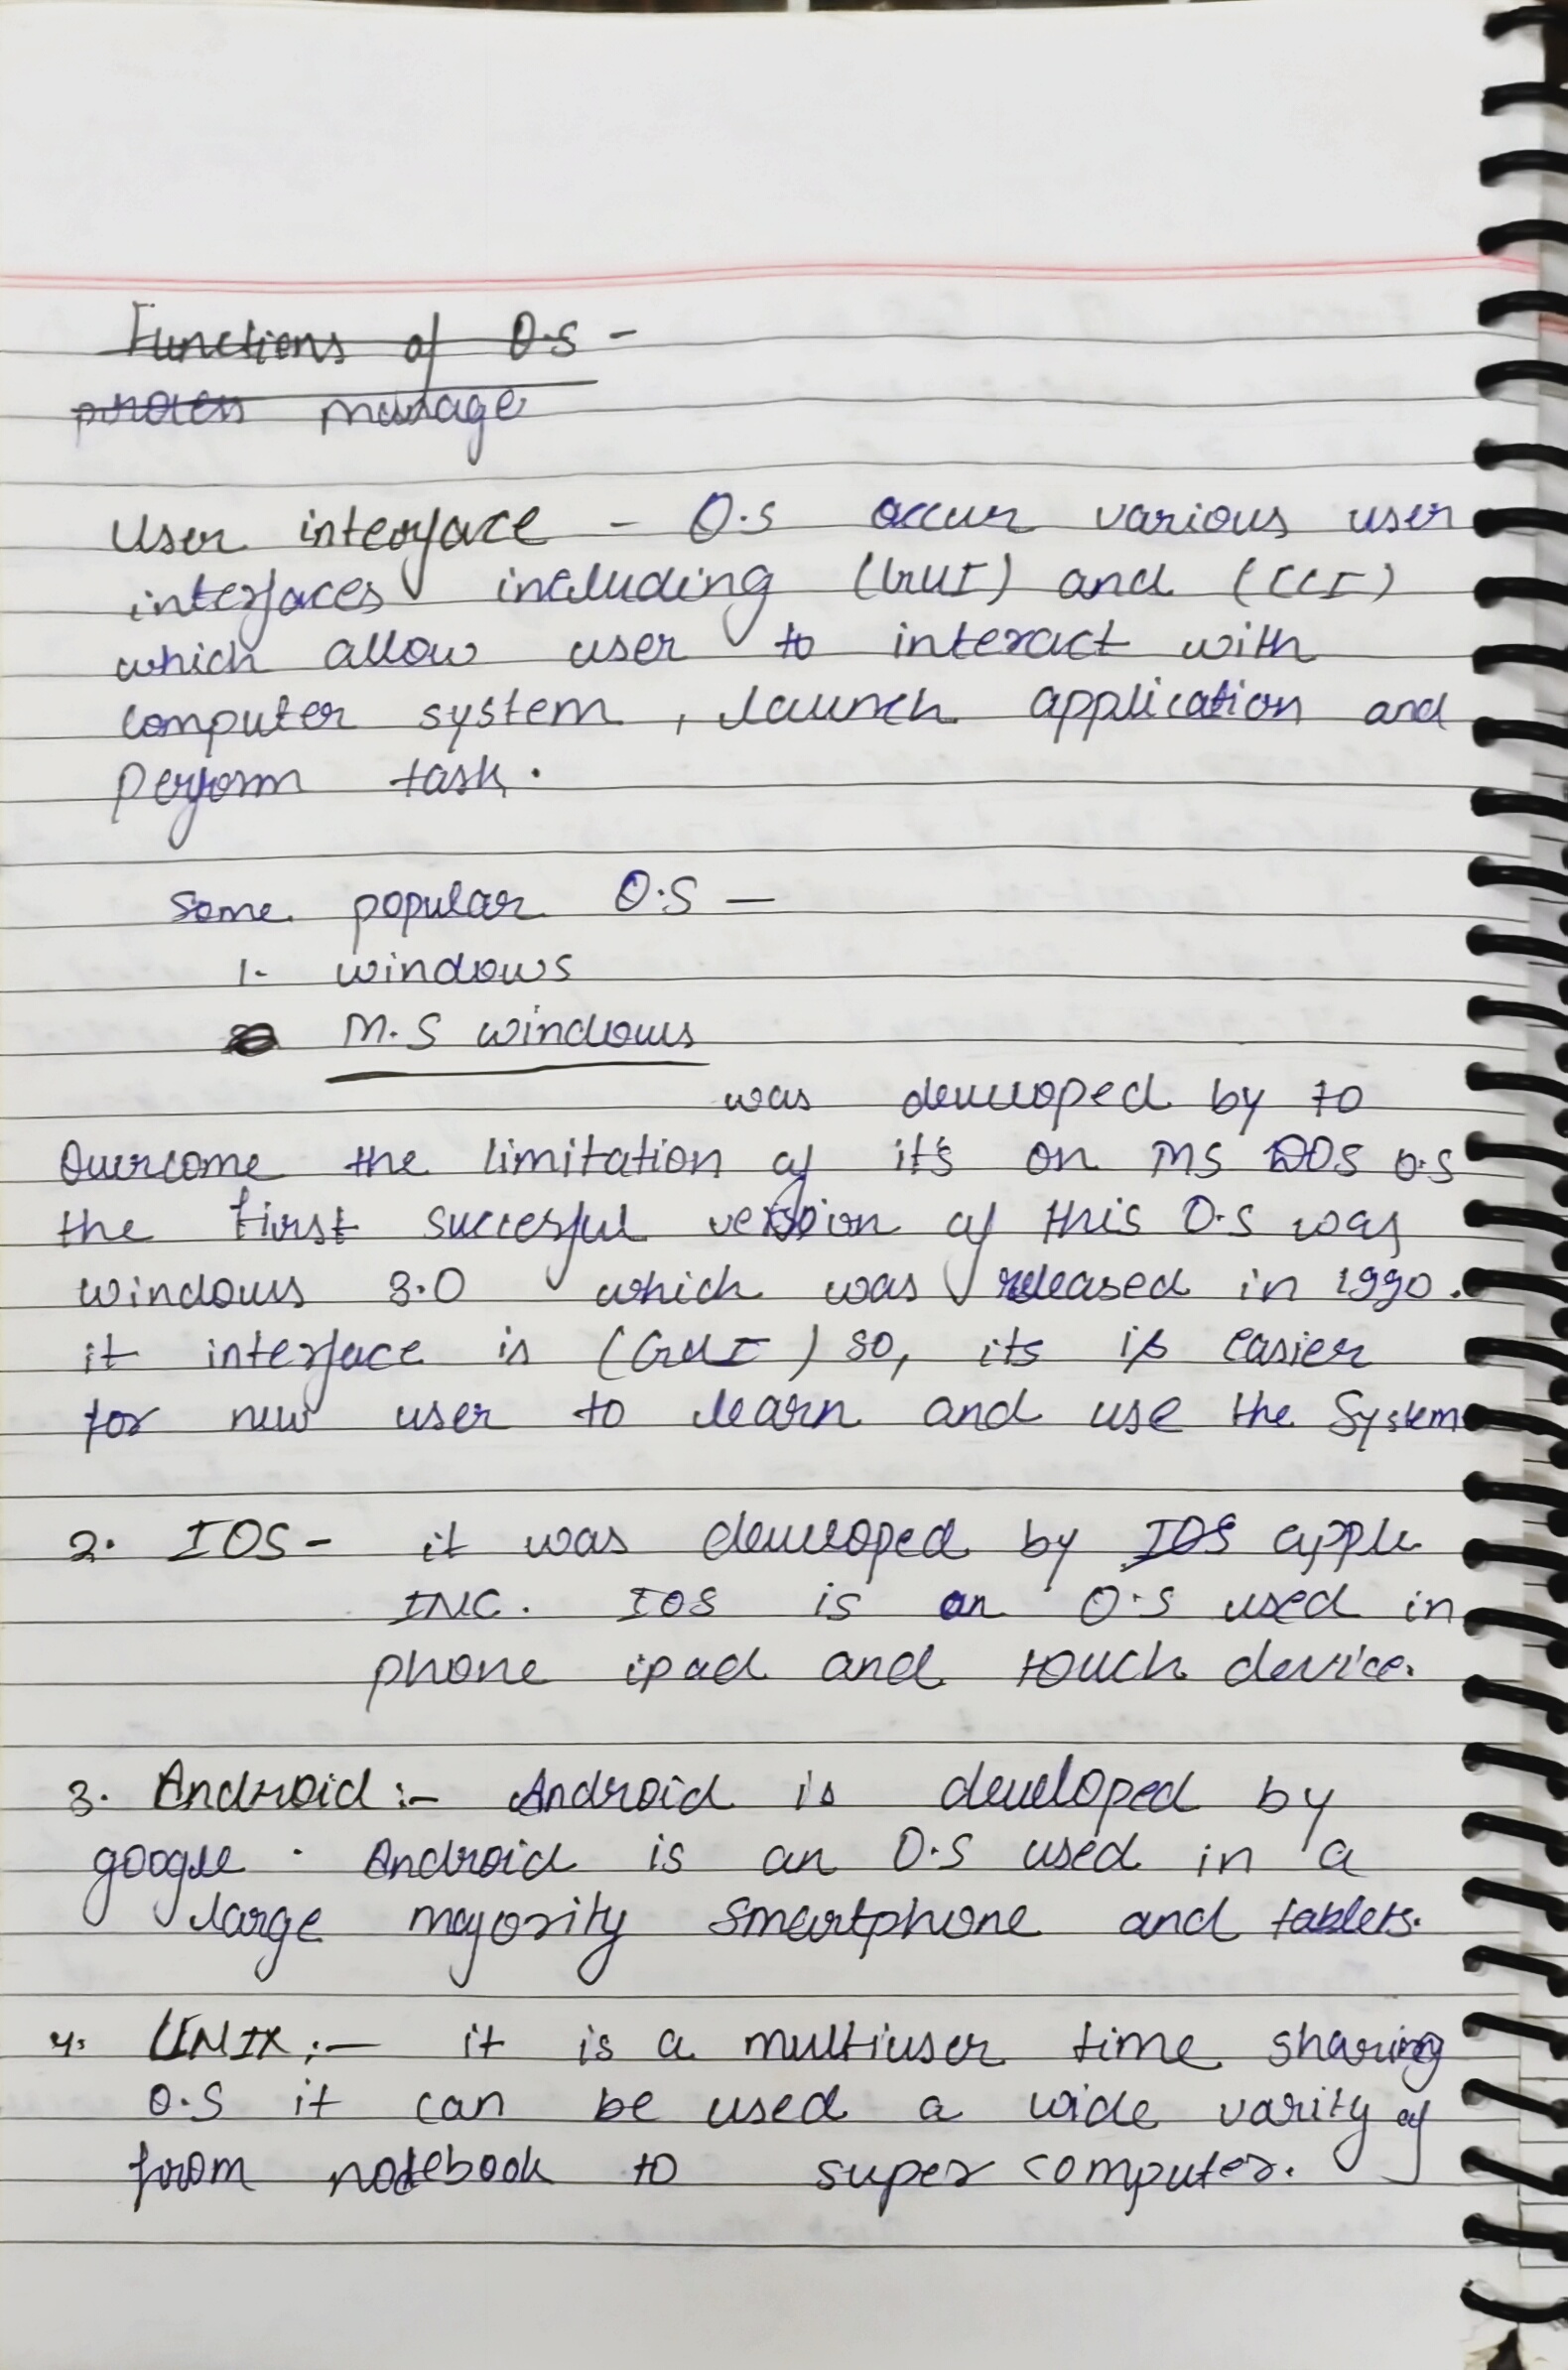 Functions of O.S -
process manage
User interface - O.S occur various user
interfaces including (GUI) and (CCI)
which allow user to interact with
computer system, launch application and
perform task.
Some popular O.S —
1. windows
M.S windows
was developed by to
Overcome the limitation of it's on MS DOS O.S
the first succesful version of this O.S was
windows 3.0 which was released in 1990.
it interface is (GUI) so, its is easier
for new user to learn and use the System
2. IOS - it was developed by IOS apple
INC. IOS is an O.S used in
phone ipad and touch device.
3. Android :- Android is developed by
google . Android is an O.S used in a
large majority smartphone and tablets.
4. UNIX :- it is a multiuser time sharing
O.S it can be used a wide varity of
from notebook to super computer.